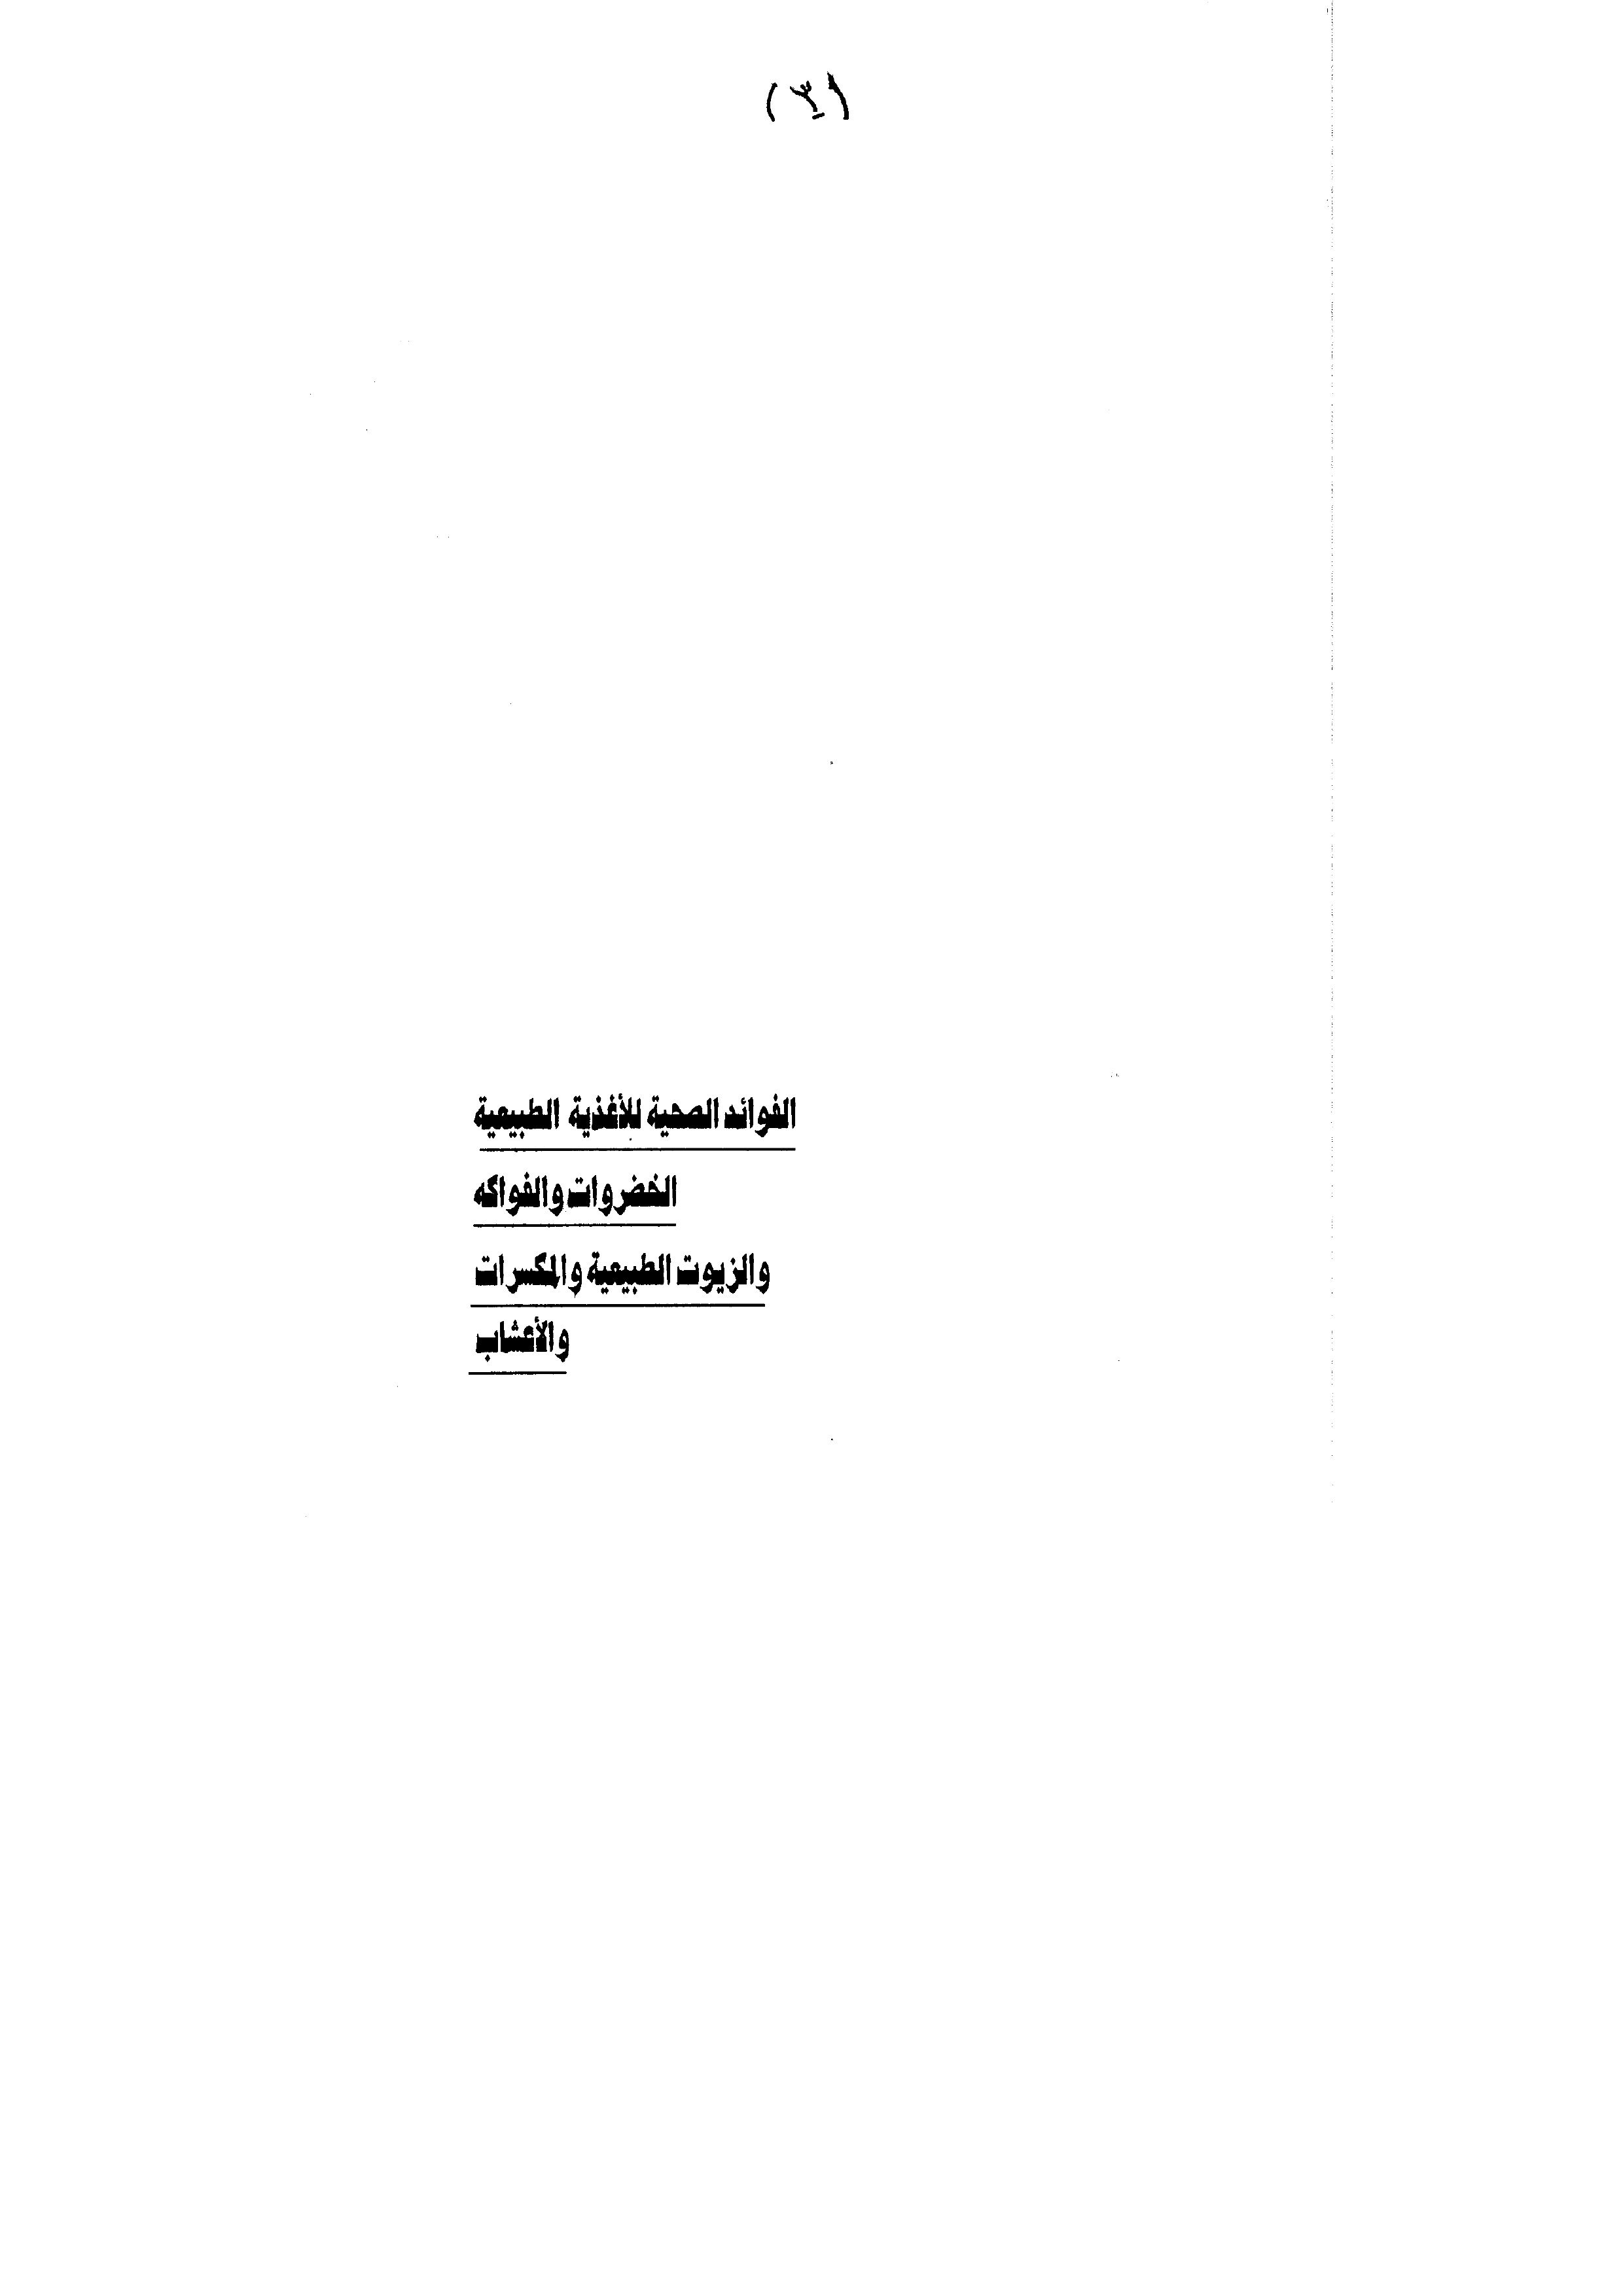 (٣)
الفوائد الصحية للأغذية الطبيعية
الخضروات والفواكه
والزيوت الطبيعية والمكسرات
والأعشاب